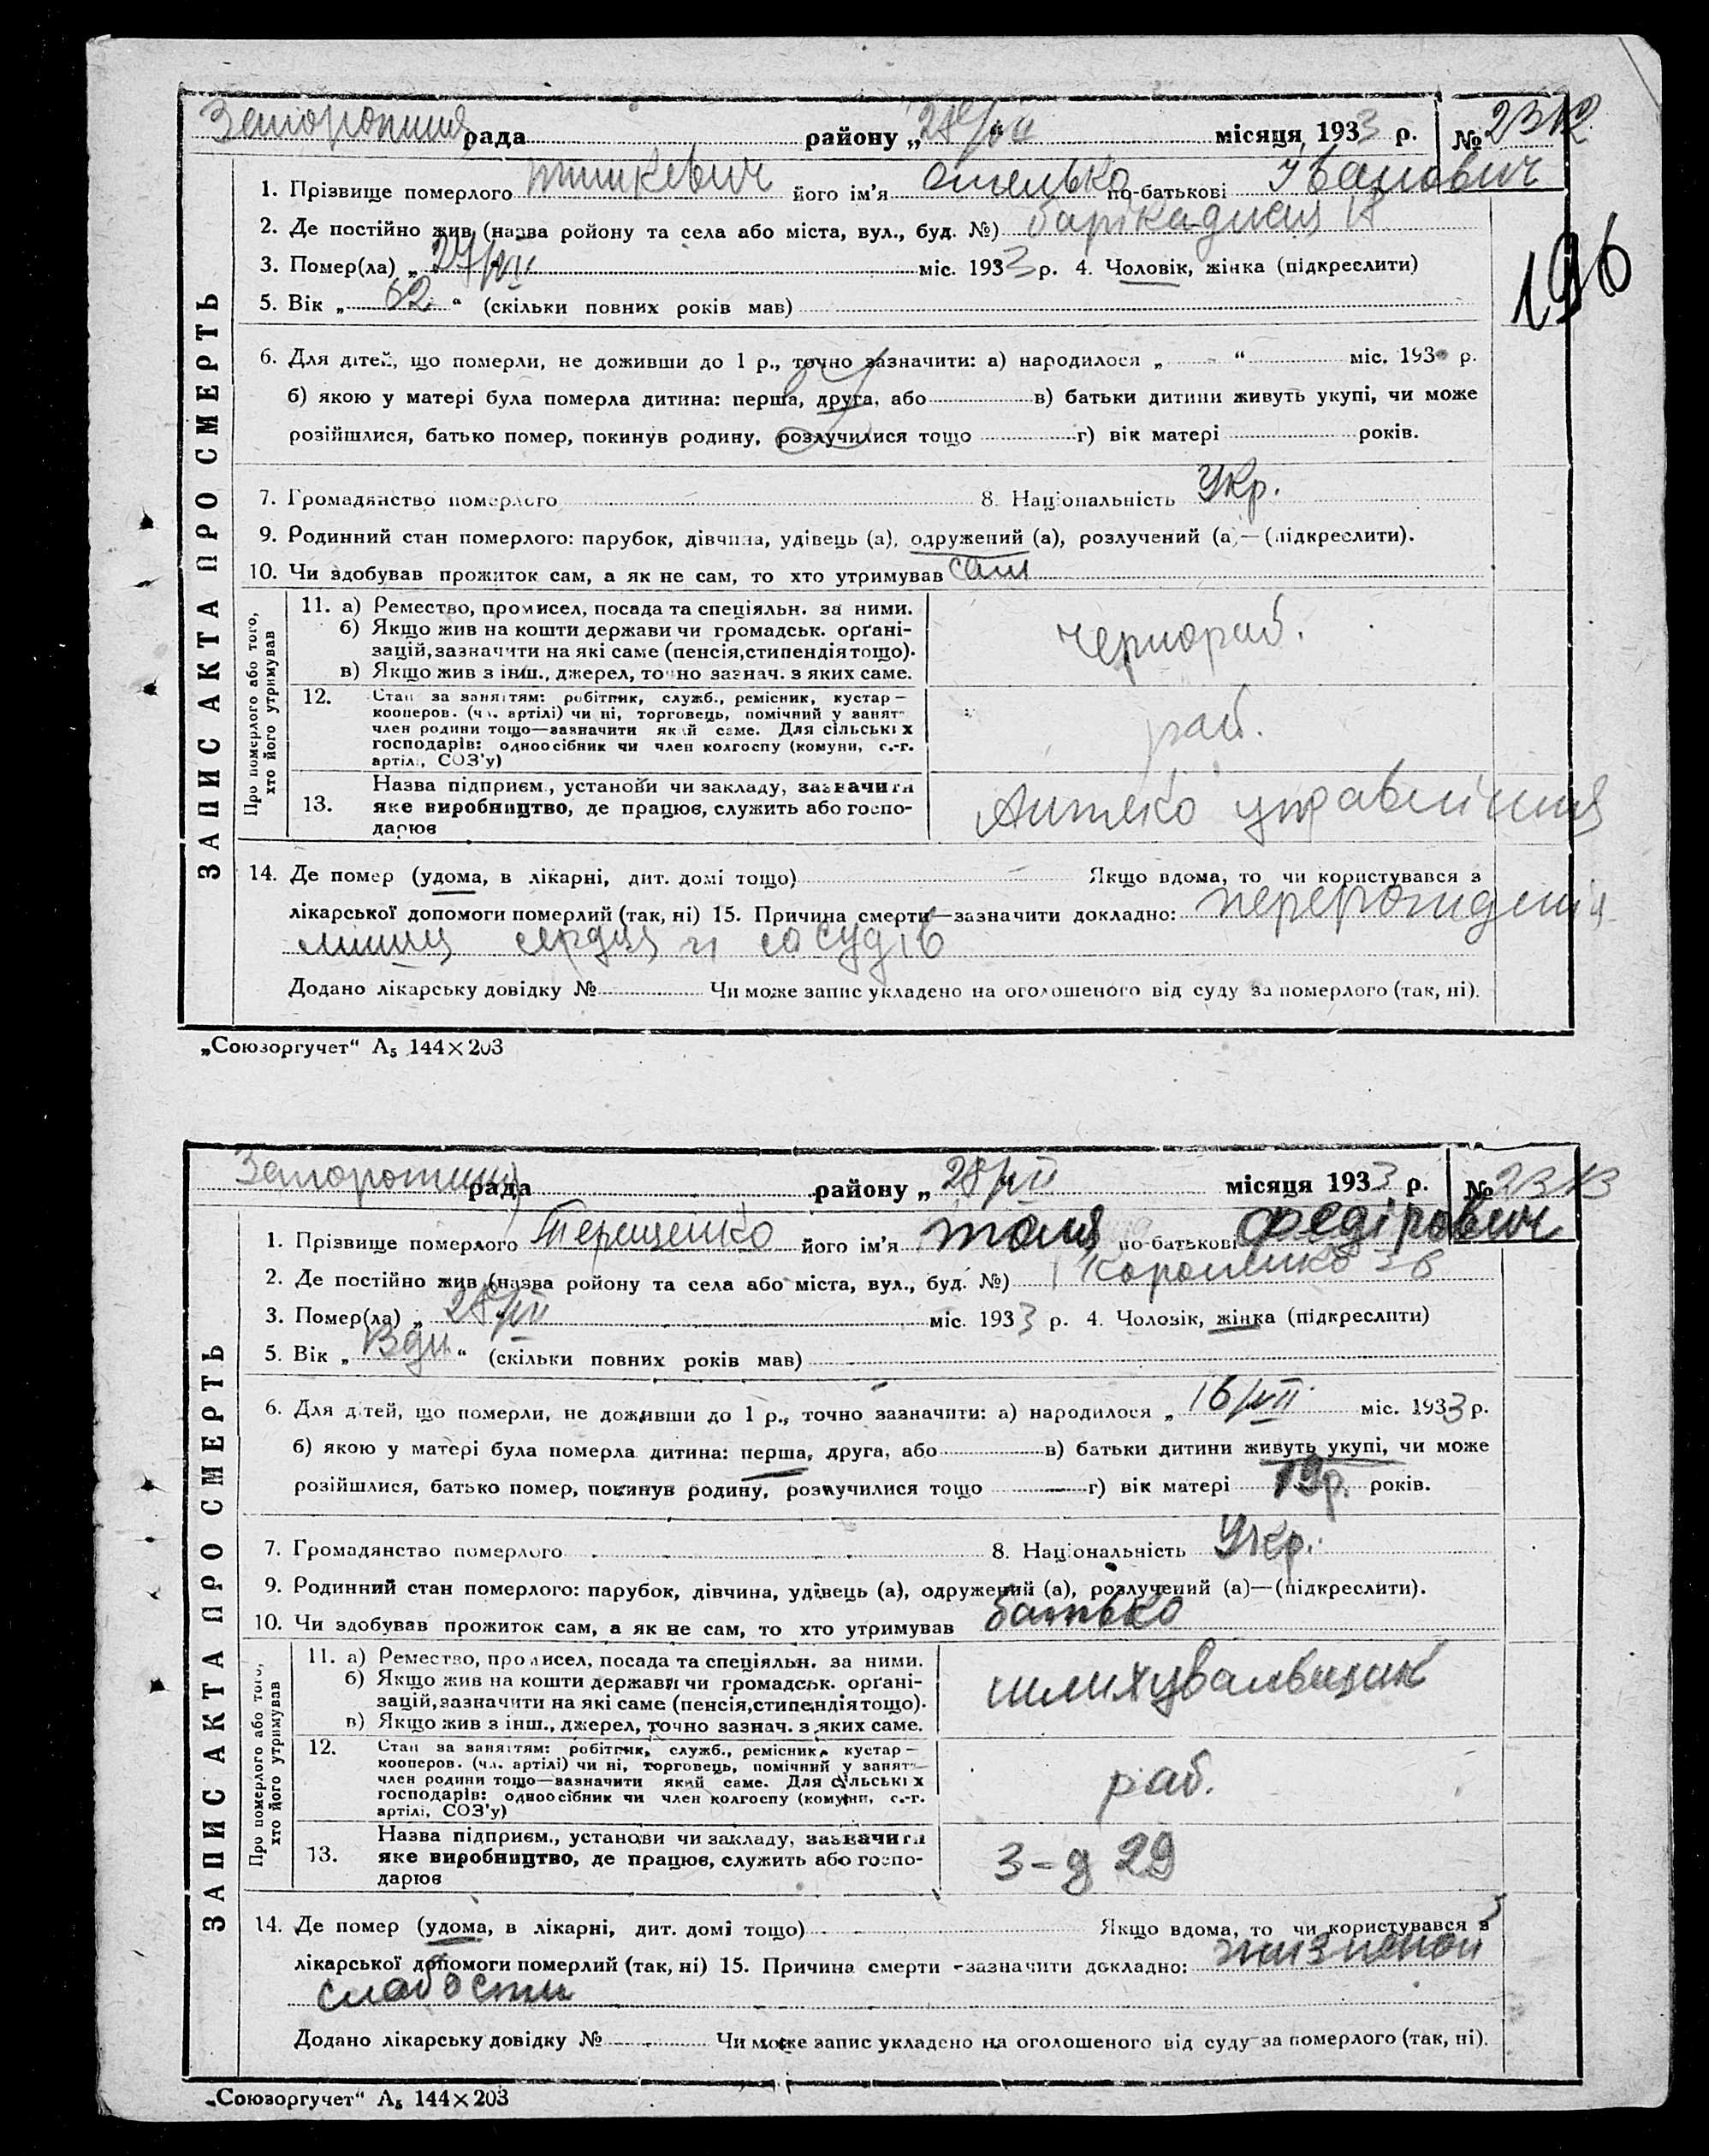 рада района „28/VII“ місяця 1933 р. № 2312
1. Прізвище померлого його ім'я Омелько по-батькові Іванович
2. Де постійно жив (назва району та села або міста, вул., буд. №)
3. Помер(ла) „27/VII міс. 1933 р. 4. Чоловік, жінка (підкреслити)
5. Вік „62“ (скільки повних років мав)
196
6. Для дітей, що померли, не доживши до 1 р., точно зазначити: а) народилося „ “ міс. 193 р.
б) якою у матері була померла дитина: перша, друга, або в) батьки дитини живуть укупі, чи може
розійшлися, батько помер, покинув родину, розлучилися тощо г) вік матері років.
7. Громадянство померлого 8. Національність Укр.
9. Родинний стан померлого: парубок, дівчина, удівець (а), одружений (а), розлучений (а)—(підкреслити).
10. Чи здобував прожиток сам, а як не сам, то хто утримував сам
ЗАПИС АКТА ПРО СМЕРТЬ
Про померлого або того, хто його утримував
11. а) Ремество, промисел, посада та спеціяльн. за ними.
б) Якщо жив на кошти держави чи громадськ. орґані-
зацій, зазначити на які саме (пенсія, стипендія тощо).
в) Якщо жив з інш., джерел, точно зазнач. з яких саме.
чернораб.
12. Стан за заняттям: робітник, служб., ремісник, кустар—
кооперов. (чл. артілі) чи ні, торговець, помічний у занят-
член родини тощо—зазначити який саме. Для сільських
господарів: одноосібник чи член колгоспу (комуни, с.-г.
артілі, СОЗ'у)
раб.
13. Назва підприєм., установи чи закладу, зазначити
яке виробництво, де працює, служить або госпо-
дарює
управління
14. Де помер (удома, в лікарні, дит. домі тощо) Якщо вдома, то чи користувався з
лікарської допомоги померлий (так, ні) 15. Причина смерти—зазначити докладно: перерождения
мишц сердця и сосудів
Додано лікарську довідку № Чи може запис укладено на оголошеного від суду за померлого (так, ні).
„Союзоргучет“ А₅ 144×203
рада району „28/VII місяця 1933 р. № 2313
1. Прізвище померлого Терещенко його ім'я Толя по-батькові Федірович
2. Де постійно жив (назва району та села або міста, вул., буд. №) Короленко 38
3. Помер(ла) „28/VII міс. 1933 р. 4. Чоловік, жінка (підкреслити)
5. Вік „ “ (скільки повних років мав)
6. Для дітей, що померли, не доживши до 1 р., точно зазначити: а) народилося „16/VII міс. 1933 р.
б) якою у матері була померла дитина: перша, друга, або в) батьки дитини живуть укупі, чи може
розійшлися, батько помер, покинув родину, розлучилися тощо г) вік матері 19 р. років.
7. Громадянство померлого 8. Національність Укр.
9. Родинний стан померлого: парубок, дівчина, удівець (а), одружений (а), розлучений (а)—(підкреслити).
10. Чи здобував прожиток сам, а як не сам, то хто утримував батько
ЗАПИС АКТА ПРО СМЕРТЬ
Про померлого або того, хто його утримував
11. а) Ремество, промисел, посада та спеціяльн. за ними.
б) Якщо жив на кошти держави чи громадськ. орґані-
зацій, зазначити на які саме (пенсія, стипендія тощо).
в) Якщо жив з інш., джерел, точно зазнач. з яких саме.
шлихувальщик
12. Стан за заняттям: робітник, служб., ремісник, кустар—
кооперов. (чл. артілі) чи ні, торговець, помічний у занят-
член родини тощо—зазначити який саме. Для сільських
господарів: одноосібник чи член колгоспу (комуни, с.-г.
артілі, СОЗ'у)
раб.
13. Назва підприєм., установи чи закладу, зазначити
яке виробництво, де працює, служить або госпо-
дарює
З-д 29
14. Де помер (удома, в лікарні, дит. домі тощо) Якщо вдома, то чи користувався з
лікарської допомоги померлий (так, ні) 15. Причина смерти—зазначити докладно: жизненой
слабости
Додано лікарську довідку № Чи може запис укладено на оголошеного від суду за померлого (так, ні).
„Союзоргучет“ А₅ 144×203